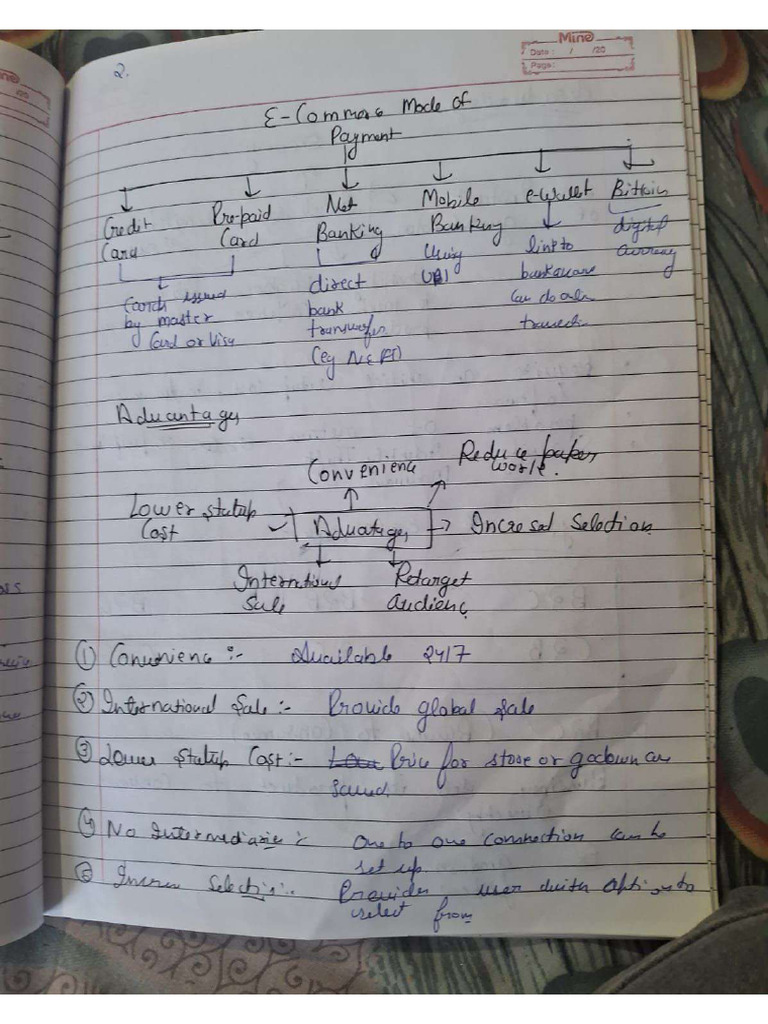 Mino
Date : / /20
Page:
2.
E-Commerce Mode of
Payment
Credit Pre-paid Net Mobile e-wallet Bitcoin
Card Card Banking Banking
Cards issued by master Card or Visa
direct bank transfer (eg NEFT)
Using UPI
link to
can do
digital currency
Advantages
Convenience Reduce paper
work.
Lower statup
Cost
Aduatages
Incresed Selection
International
Sale
Retarget
audience
① Convenience :- Available 24/7
② International Sale :- Provide global sale
③ Lower Statup Cost :- Price for store or godown are
saved.
④ No Intermediaries :- One to one connection can be
set up.
Selection :- Provides user with option to
select from